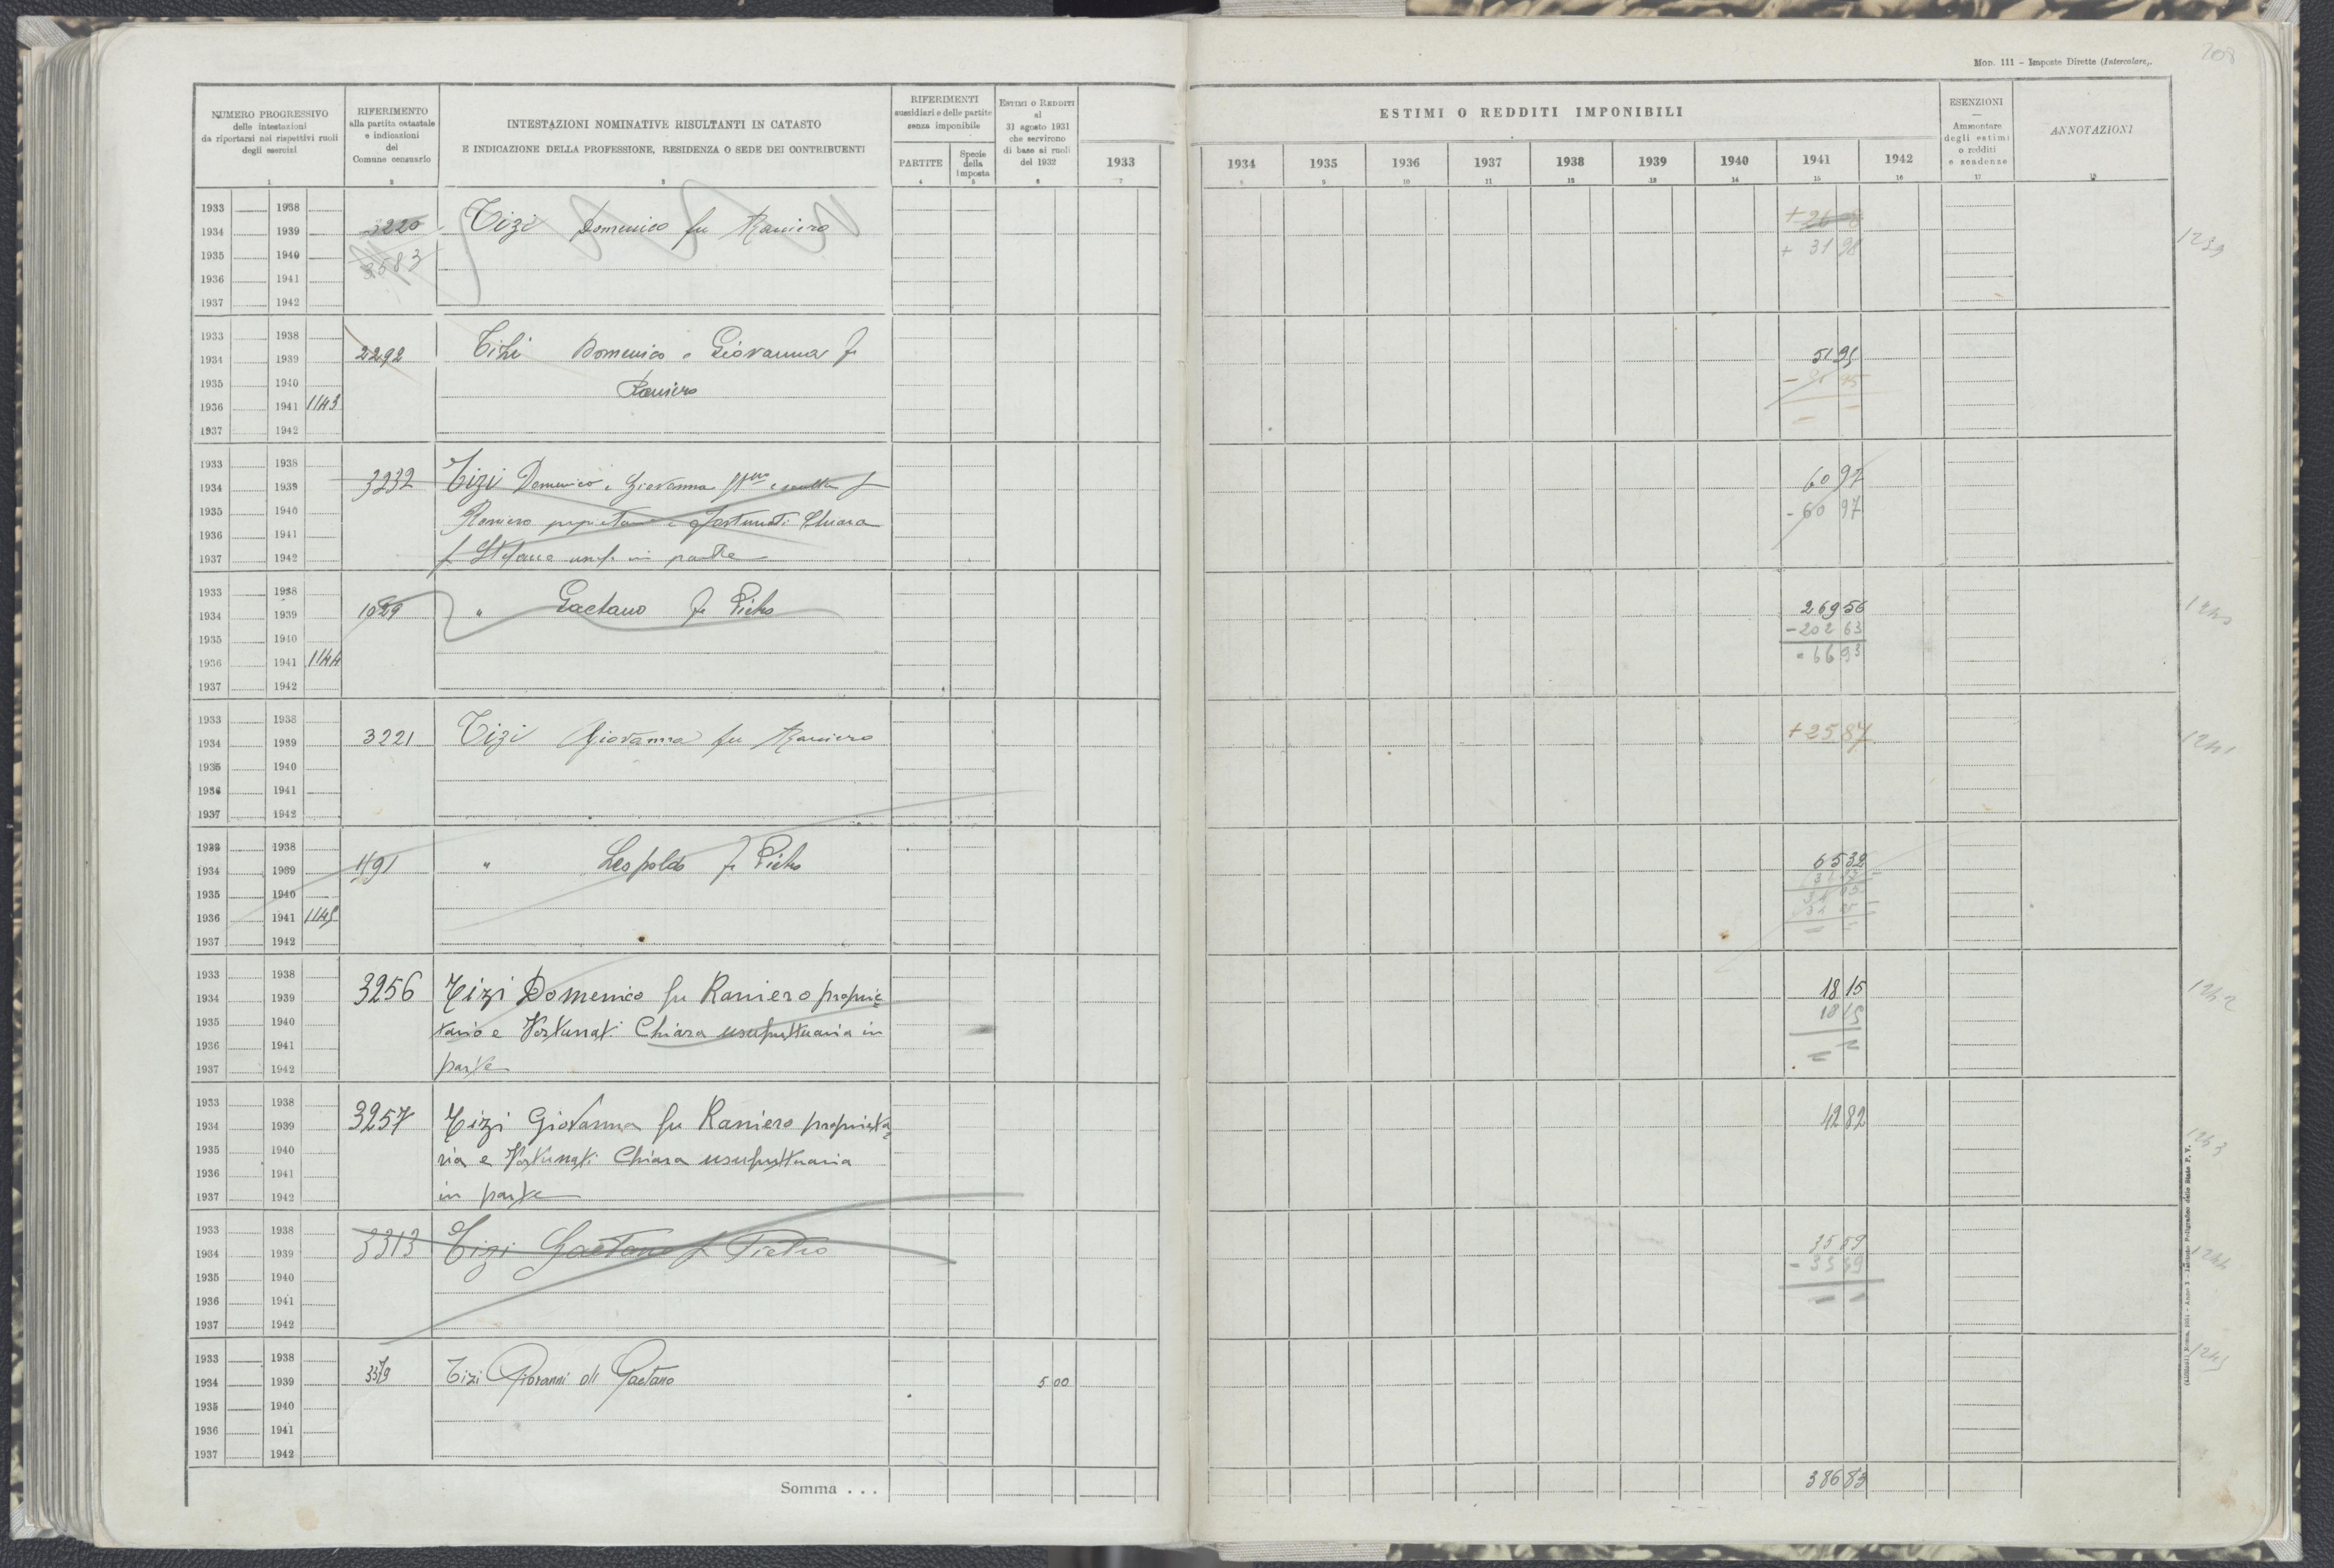 208
MOD. 111 – Imposte Dirette (Intercolare).
NUMERO PROGRESSIVO
delle intestazioni
da riportarsi nei rispettivi ruoli
degli esercizi
1
RIFERIMENTO
alla partita catastale
e indicazioni
del
Comune censuario
2
INTESTAZIONI NOMINATIVE RISULTANTI IN CATASTO
E INDICAZIONE DELLA PROFESSIONE, RESIDENZA O SEDE DEI CONTRIBUENTI
3
RIFERIMENTI
sussidiari e delle partite
senza imponibile
PARTITE
4
Specie
della
Imposta
5
ESTIMI O REDDITI
al
31 agosto 1931
che servirono
di base ai ruoli
del 1932
6
1933
7
ESTIMI O REDDITI IMPONIBILI
1934 1935 1936 1937 1938 1939 1940 1941 1942
8 9 10 11 12 13 14 15 16
ESENZIONI
—
Ammontare
degli estimi
o redditi
e scadenze
17
ANNOTAZIONI
18
1933 1938
1934 1939 3220 Tizi Domenico fu Raniero
1935 1940 3583 + 31 98 1239
1936 1941
1937 1942
1933 1938
1934 1939 2292 Tizi Domenico e Giovanna f 51 95
1935 1940 Raniero
1936 1941 1143
1937 1942
1933 1938
1934 1939 3232 Tizi Domenico e Giovanna f 60 97
1935 1940 Raniero e Fortunati Chiara - 60 97
1936 1941
1937 1942 in parte
1933 1938
1934 1939 1029 " Gaetano fu Pietro 269 56 1240
1935 1940 - 202 63
1936 1941 1144 66 93
1937 1942
1933 1938
1934 1939 3221 Tizi Giovanna fu Raniero + 25 87 1241
1935 1940
1936 1941
1937 1942
1933 1938
1934 1939 1191 " Leopoldo fu Pietro 65 32
1935 1940
1936 1941 1145
1937 1942
1933 1938
1934 1939 3256 Tizi Domenico fu Raniero proprie 18 15 1242
1935 1940 tario e Fortunati Chiara usufruttuaria in 18 15
1936 1941 parte
1937 1942
1933 1938
1934 1939 3257 Tizi Giovanna fu Raniero proprieta 42 82 1243
1935 1940 ria e Fortunati Chiara usufruttuaria
1936 1941 in parte
1937 1942
1933 1938
1934 1939 3313 Tizi Gaetano f Pietro 35 59 1244
1935 1940 - 35 59
1936 1941
1937 1942
1933 1938
1934 1939 3379 Tizi Giovanni di Gaetano 5 00 1245
1935 1940
1936 1941
1937 1942
Somma . . . 386 83